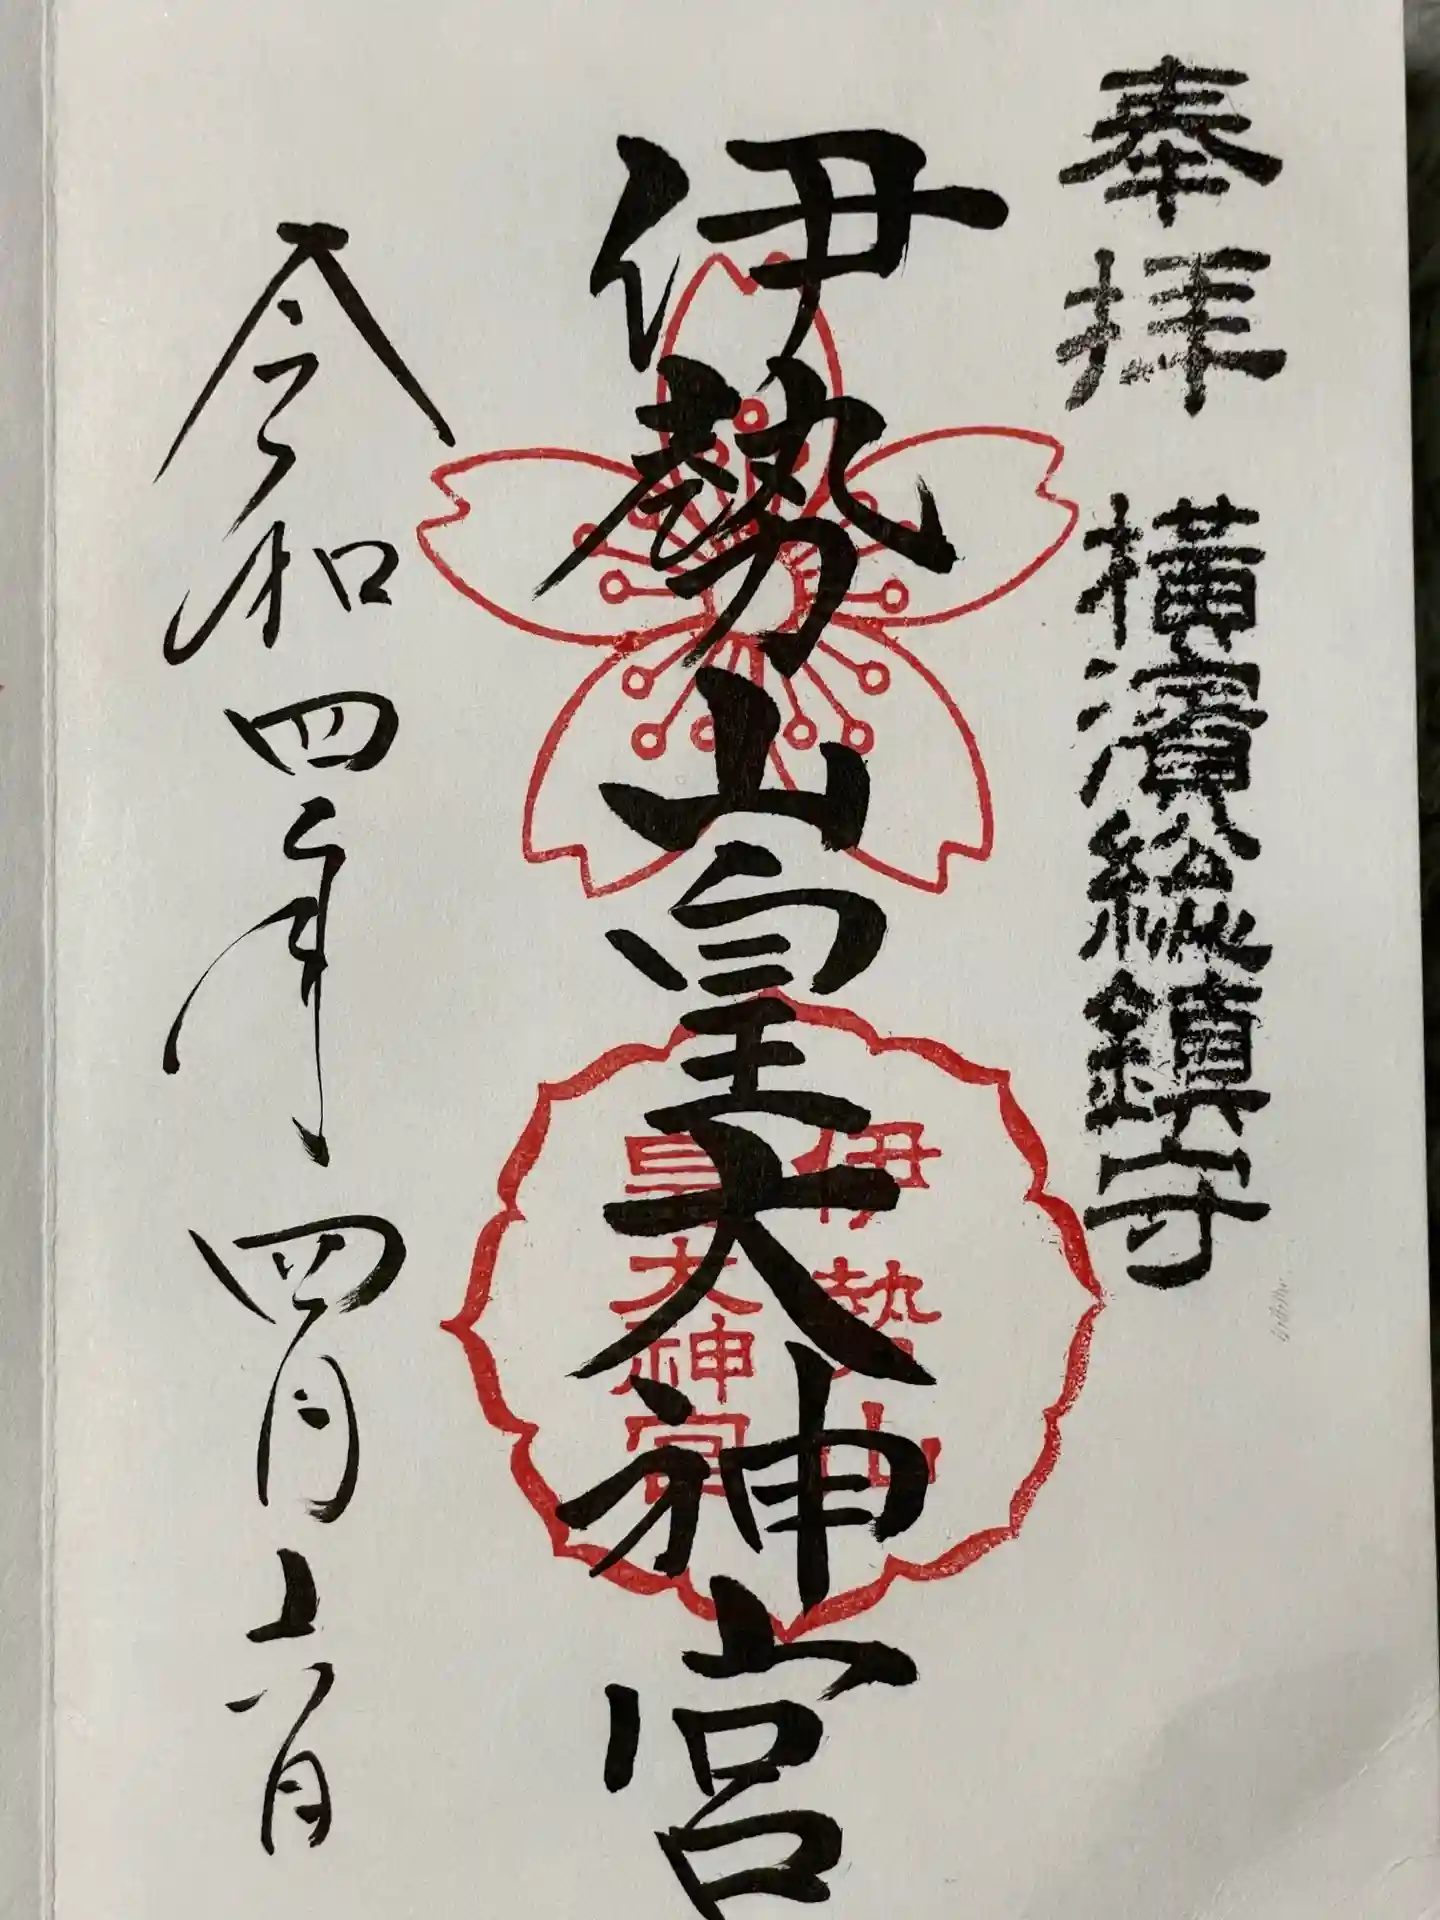 奉拝 横濱総鎮守
伊勢山皇大神宮
伊勢山
皇大神宮
令和四年四月六日